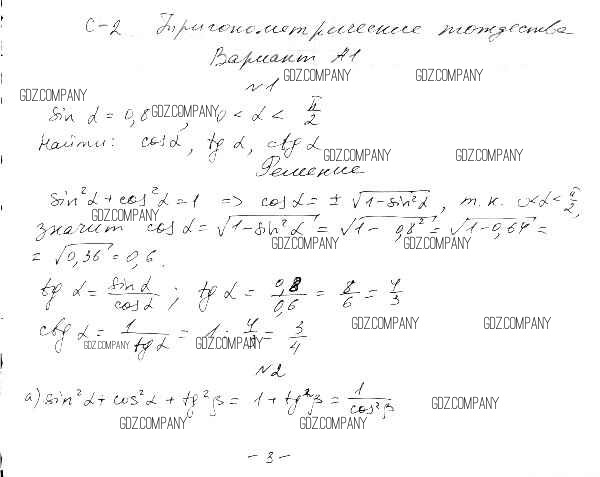 С-2 Тригонометрические тождества
Вариант А1
GDZ.COMPANY GDZ.COMPANY
№1
GDZ.COMPANY
sin α = 0,8 GDZ.COMPANY, 0 < α < π/2
Найти: cos α, tg α, ctg α
GDZ.COMPANY GDZ.COMPANY
Решение
sin²α + cos²α = 1 => cos α = ± √(1-sin²α), т.к. 0<α<π/2,
GDZ.COMPANY
значит cos α = √(1-sin²α) = √(1-0,8²) = √(1-0,64) =
GDZ.COMPANY GDZ.COMPANY
= √0,36 = 0,6.
tg α = sin α/cos α ; tg α = 0,8/0,6 = 8/6 = 4/3
GDZ.COMPANY GDZ.COMPANY
ctg α = 1/tg α = 1 : 4/3 = 3/4
GDZ.COMPANY GDZ.COMPANY
№2
а) sin²α + cos²α + tg²β = 1 + tg²β = 1/cos²β
GDZ.COMPANY
GDZ.COMPANY GDZ.COMPANY
- 3 -